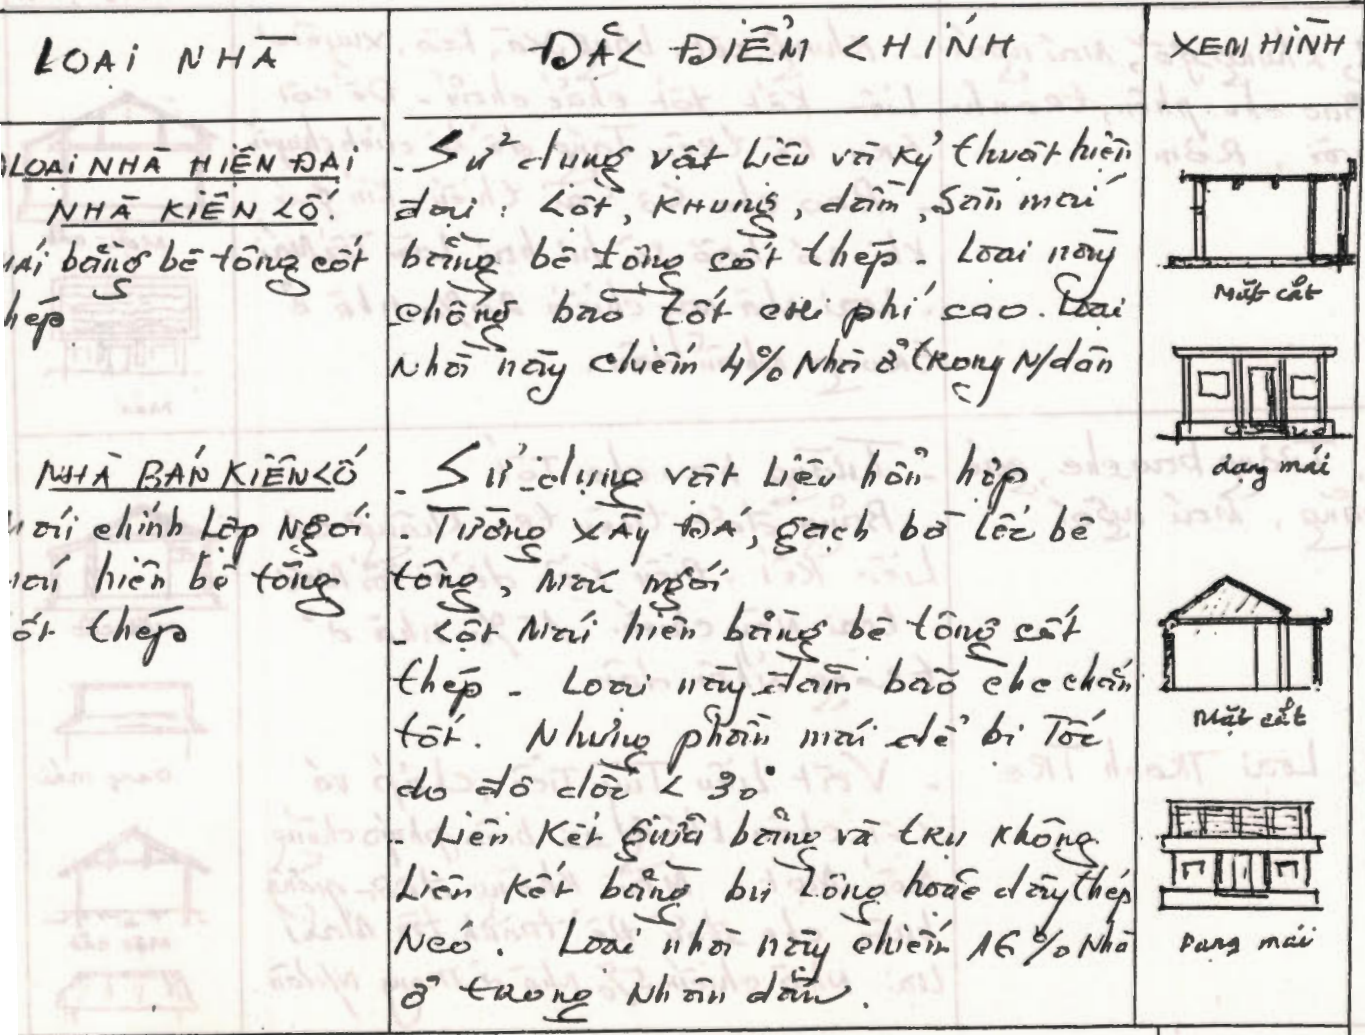 LOẠI NHÀ
ĐẶC ĐIỂM CHÍNH
XEM HÌNH
LOẠI NHÀ HIỆN ĐẠI
NHÀ KIÊN CỐ.
bằng bê tông cốt
- Sử dụng vật liệu và kỷ thuật hiện
đại : Cột, KHUNG, dầm, Sàn mái
bằng bê tông cốt thép - Loại này
chống bảo tốt chi phí cao. Loại
Nhà này chiếm 4% Nhà ở trong N/dân
Mặt cắt
dạng mái
NHÀ BÁN KIÊN CỐ
chính Lợp Ngói
hiên bê tông
thép
- Sử dụng vật liệu hổn hợp
- Tường XÂY ĐÁ, gạch bờ lốc bê
tông, Mái ngói
- Cột Mái hiên bằng bê tông cốt
thép - Loại này đảm bảo che chắn
tốt. Nhưng phần mái dể bị Tốc
do độ dốc < 30°
- Liên Kết giữa bằng và trụ không
Liên kết bằng bu lông hoặc dây thép
Neo. Loại nhà này chiếm 16% Nhà
ở trong Nhân dân.
Mặt cắt
Dạng mái